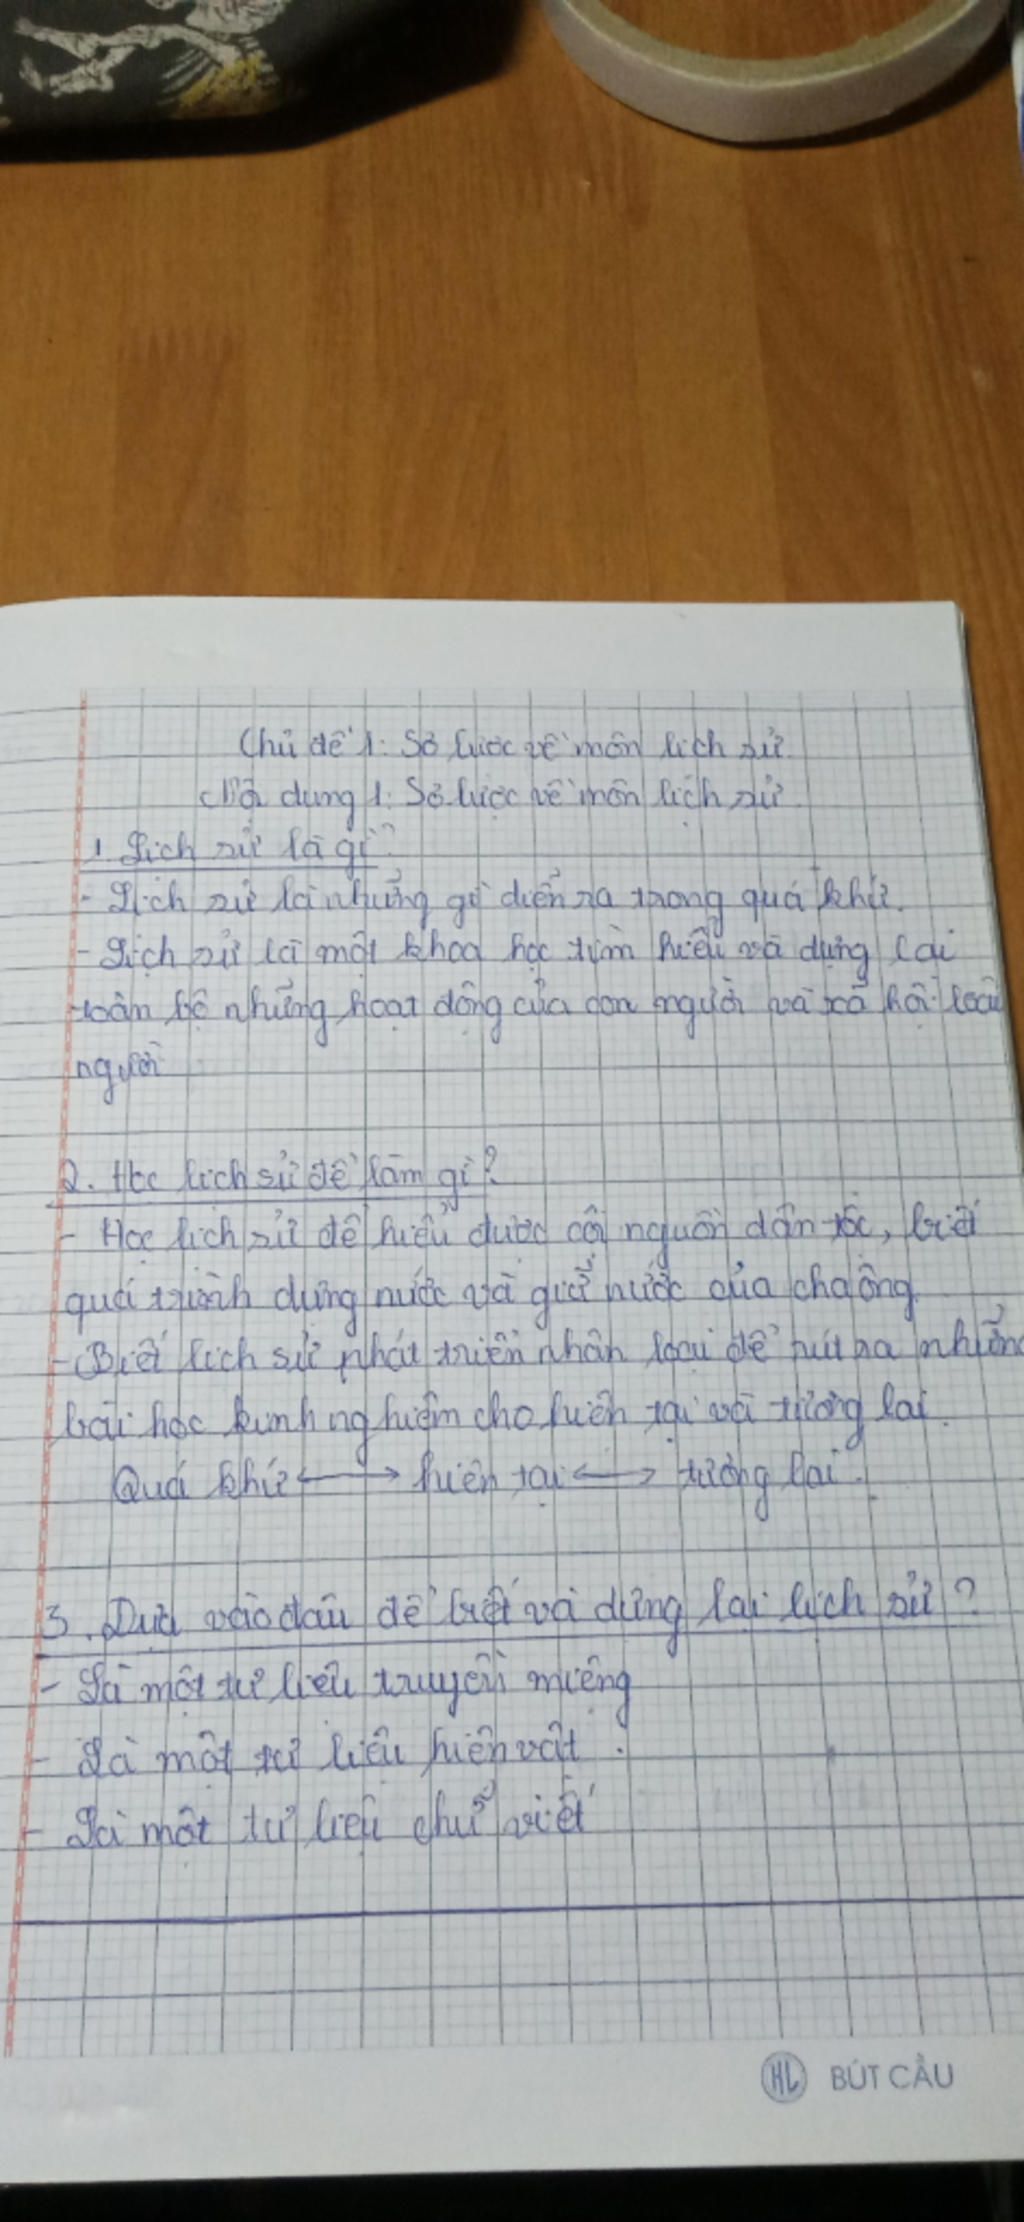 Chủ đề 1: Sơ lược về môn lịch sử.
Nội dung 1: Sơ lược về môn lịch sử
1. Lịch sử là gì?
- Lịch sử là những gì diễn ra trong quá khứ.
- Lịch sử là một khoa học tìm hiểu và dựng lại
toàn bộ những hoạt động của con người và xã hội loài
người
2. Học lịch sử để làm gì?
- Học lịch sử để hiểu được cội nguồn dân tộc, biết
quá trình dựng nước và giữ nước của cha ông.
- Biết lịch sử phát triển nhân loại để rút ra những
bài học kinh nghiệm cho hiện tại và tương lai.
Quá khứ ⟷ hiện tại ⟷ tương lai.
3. Dựa vào đâu để biết và dựng lại lịch sử?
- Là một tư liệu truyền miệng
- Là một tư liệu hiện vật.
- Là một tư liệu chữ viết
HL BÚT CẦU